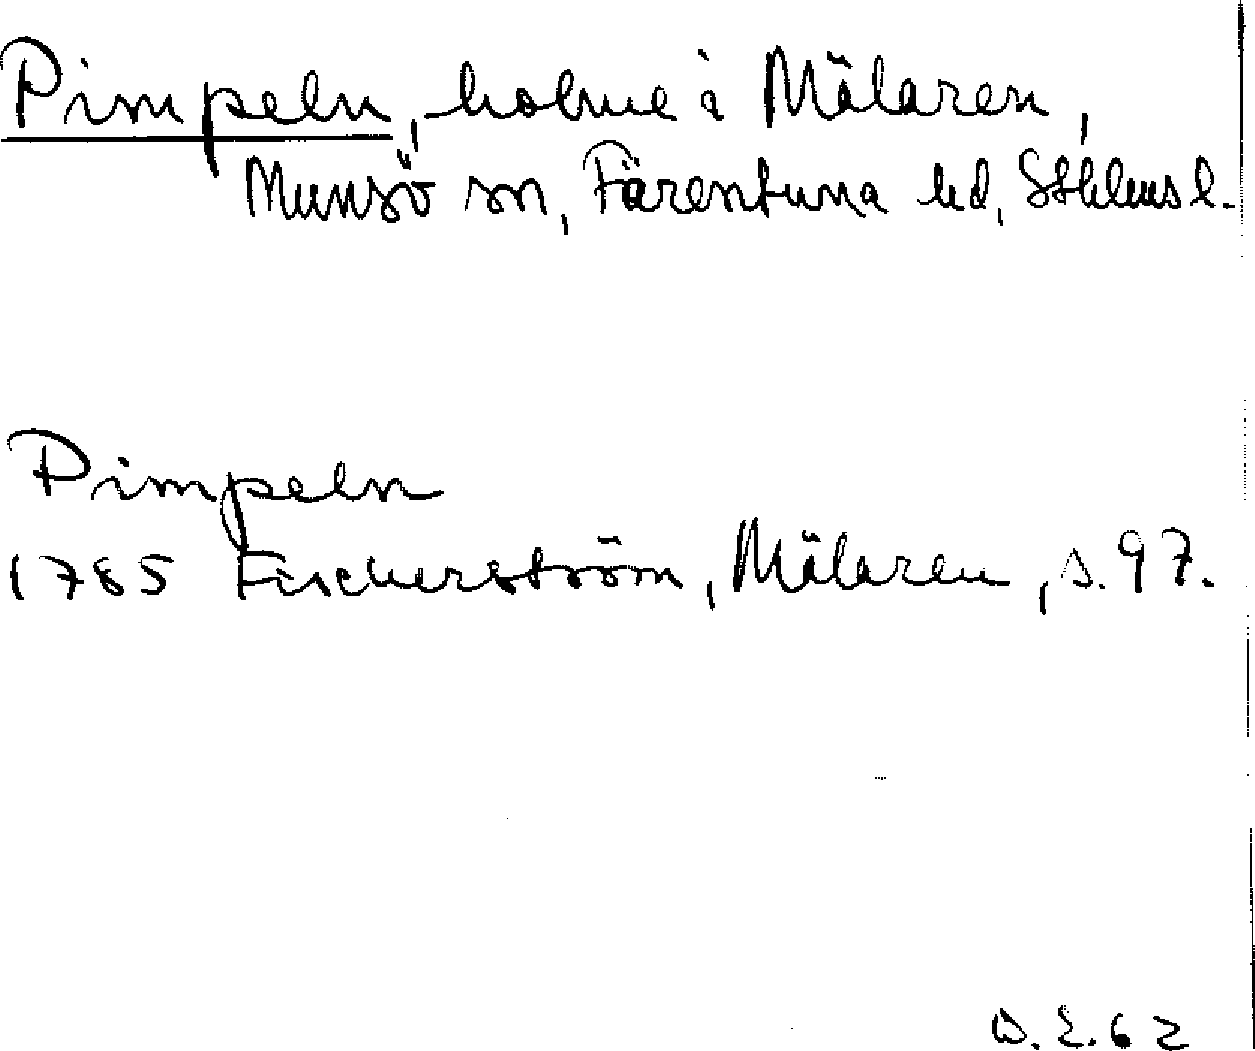 Pimpeln, holme i Mälaren,
Munsö sn, Färentuna hd, Sthlms l.
Pimpeln
1785 Fischerström, Mälaren, s. 97.
D. Z. 62